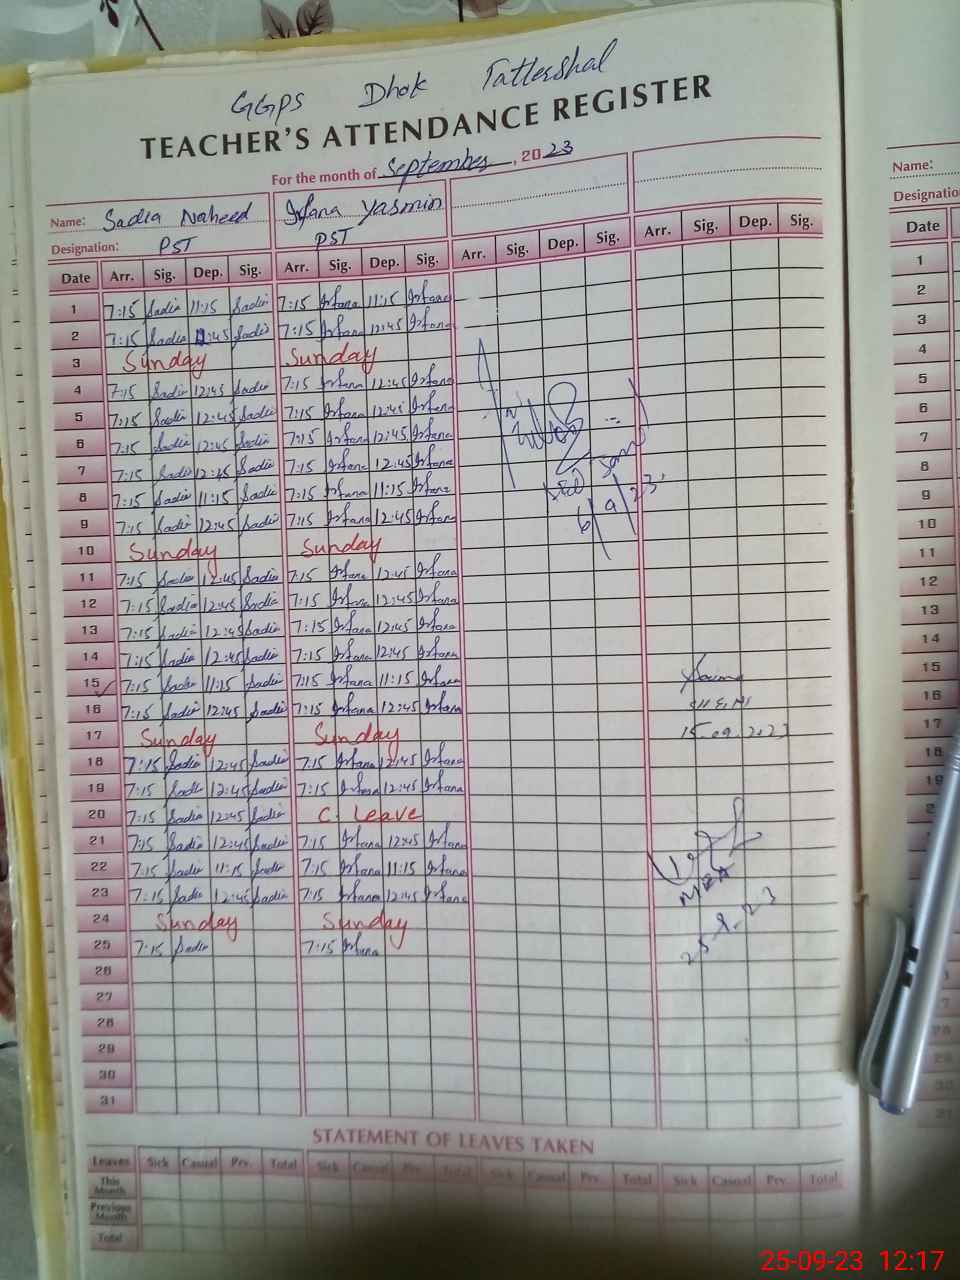 GGPS Dhok Tattershal
TEACHER'S ATTENDANCE REGISTER
For the month of September, 2023
Name: Sadia Naheed Irfana Yasmin
Designation: PST PST
Date Arr. Sig. Dep. Sig. Arr. Sig. Dep. Sig. Arr. Sig. Dep. Sig. Arr. Sig. Dep. Sig.
1 7:15 Sadia 11:15 Sadia 7:15 Irfana 11:15 Irfana
2 7:15 Sadia 12:45 Sadia 7:15 Irfana 12:45 Irfana
3 Sunday Sunday
4 7:15 Sadia 12:45 Sadia 7:15 Irfana 12:45 Irfana
5 7:15 Sadia 12:45 Sadia 7:15 Irfana 12:45 Irfana
6 7:15 Sadia 12:45 Sadia 7:15 Irfana 12:45 Irfana
7 7:15 Sadia 12:45 Sadia 7:15 Irfana 12:45 Irfana
8 7:15 Sadia 11:15 Sadia 7:15 Irfana 11:15 Irfana
9 7:15 Sadia 12:45 Sadia 7:15 Irfana 12:45 Irfana
6/9/23
10 Sunday Sunday
11 7:15 Sadia 12:45 Sadia 7:15 Irfana 12:45 Irfana
12 7:15 Sadia 12:45 Sadia 7:15 Irfana 12:45 Irfana
13 7:15 Sadia 12:45 Sadia 7:15 Irfana 12:45 Irfana
14 7:15 Sadia 12:45 Sadia 7:15 Irfana 12:45 Irfana
15 7:15 Sadia 11:15 Sadia 7:15 Irfana 11:15 Irfana
16 7:15 Sadia 12:45 Sadia 7:15 Irfana 12:45 Irfana
17 Sunday Sunday 15-09-2023
18 7:15 Sadia 12:45 Sadia 7:15 Irfana 12:45 Irfana
19 7:15 Sadia 12:45 Sadia 7:15 Irfana 12:45 Irfana
20 7:15 Sadia 12:45 Sadia C. Leave
21 7:15 Sadia 12:45 Sadia 7:15 Irfana 12:45 Irfana
22 7:15 Sadia 11:15 Sadia 7:15 Irfana 11:15 Irfana
23 7:15 Sadia 12:45 Sadia 7:15 Irfana 12:45 Irfana MEA
24 Sunday Sunday
25 7:15 Sadia 7:15 Irfana 25-8-23
26
27
28
29
30
31
STATEMENT OF LEAVES TAKEN
Leaves Sick Casual Prv. Total Sick Casual Prv. Total Sick Casual Prv. Total Sick Casual Prv. Total
This Month
Previous Month
Total
Name:
Designatio
Date Arr.
1
2
3
4
5
6
7
8
9
10
11
12
13
14
15
16
17
18
19
25-09-23 12:17